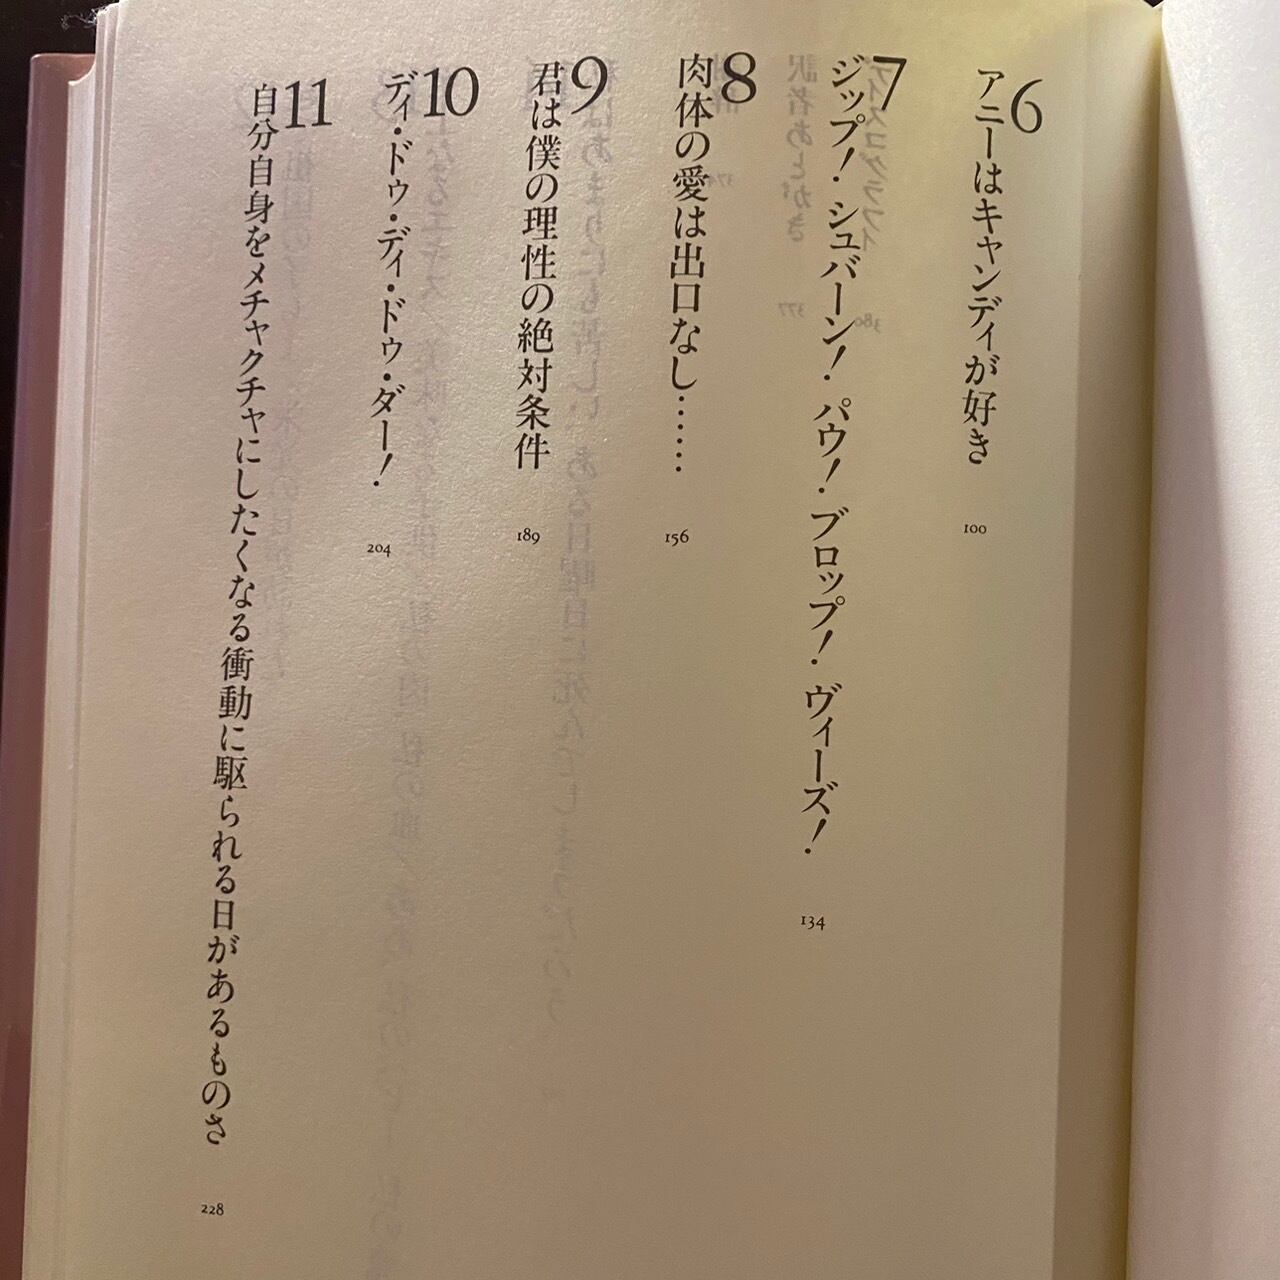 6
アニーはキャンディが好き
100
7
ジップ！シュバーン！パウ！ブロップ！ヴィーズ！
134
8
肉体の愛は出口なし……
156
9
君は僕の理性の絶対条件
189
10
ディ・ドゥ・ディ・ドゥ・ダー！
204
11
自分自身をメチャクチャにしたくなる衝動に駆られる日があるものさ
228